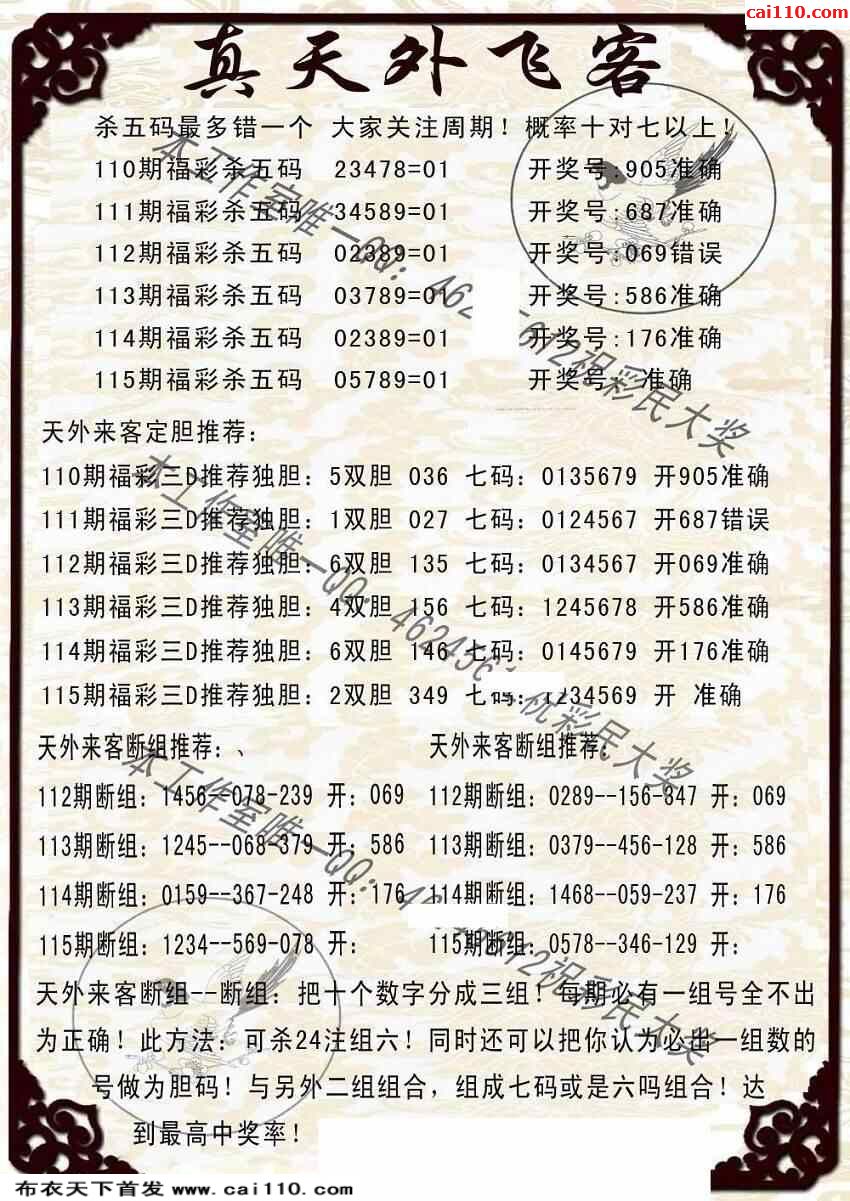 cai110.com
真天外飞客
杀五码最多错一个 大家关注周期！概率十对七以上！
110期福彩杀五码 23478=01 开奖号:905准确
111期福彩杀五码 34589=01 开奖号:687准确
112期福彩杀五码 02389=01 开奖号:069错误
113期福彩杀五码 03789=01 开奖号:586准确
114期福彩杀五码 02389=01 开奖号:176准确
115期福彩杀五码 05789=01 开奖号: 准确
天外来客定胆推荐：
110期福彩三D推荐独胆：5双胆 036 七码：0135679 开905准确
111期福彩三D推荐独胆：1双胆 027 七码：0124567 开687错误
112期福彩三D推荐独胆：6双胆 135 七码：0134567 开069准确
113期福彩三D推荐独胆：4双胆 156 七码：1245678 开586准确
114期福彩三D推荐独胆：6双胆 146 七码：0145679 开176准确
115期福彩三D推荐独胆：2双胆 349 七码：1234569 开 准确
天外来客断组推荐：、 天外来客断组推荐：
112期断组：1456--078-239 开：069 112期断组：0289--156-347 开：069
113期断组：1245--068-379 开：586 113期断组：0379--456-128 开：586
114期断组：0159--367-248 开：176 114期断组：1468--059-237 开：176
115期断组：1234--569-078 开： 115期断组：0578--346-129 开：
天外来客断组--断组：把十个数字分成三组！每期必有一组号全不出
为正确！此方法：可杀24注组六！同时还可以把你认为必出一组数的
号做为胆码！与另外二组组合，组成七码或是六吗组合！达
到最高中奖率！
本工作室唯一QQ：462 612祝彩民大奖
本工作室唯一QQ：462456 祝彩民大奖
本工作室唯一QQ：4 612祝彩民大奖
布衣天下首发 www.cai110.com